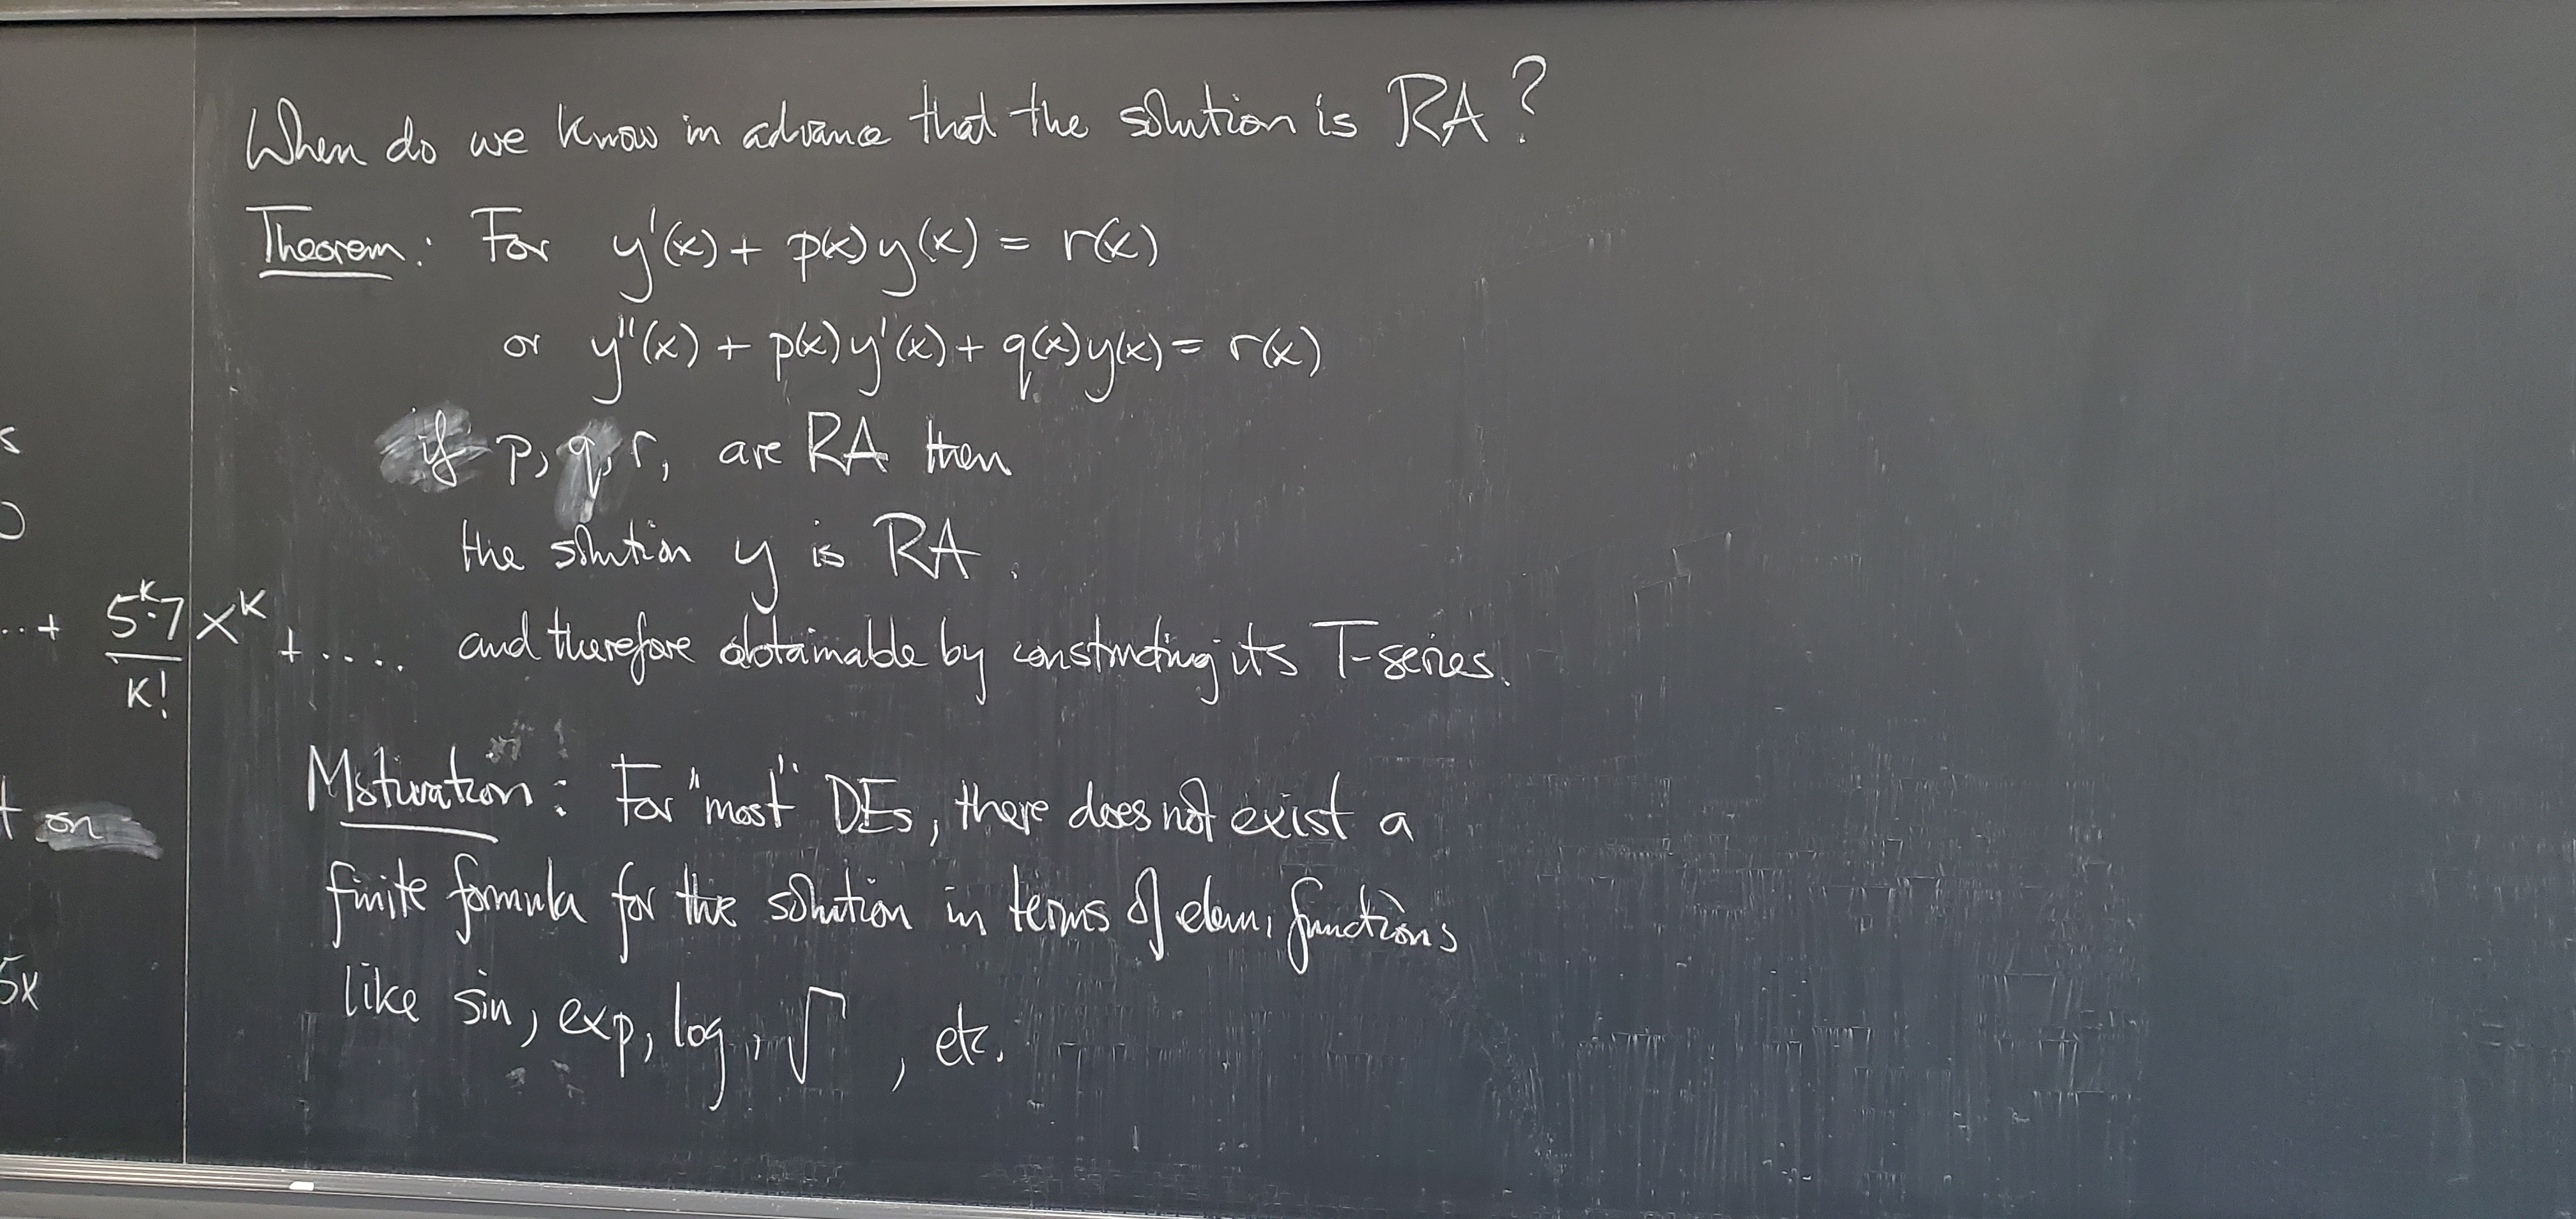 When do we know in advance that the solution is RA?
Theorem: For y'(x) + p(x)y(x) = r(x)
or y''(x) + p(x)y'(x) + q(x)y(x) = r(x)
if p, q, r, are RA then
the solution y is RA.
and therefore obtainable by constructing its T-series.
Motivation: For "most" DEs, there does not exist a
finite formula for the solution in terms of elem. functions
like sin, exp, log, √ , etc.
s
..+ 5^k·7/k! x^k + ....
t on
5x